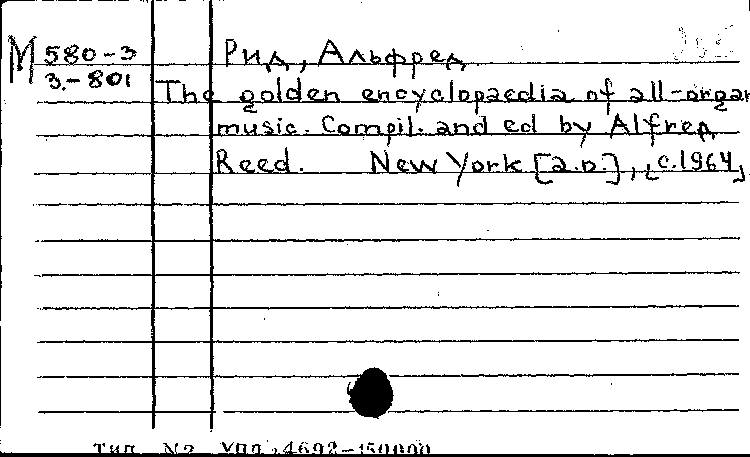 М 580-3
3.-801
Рид, Альфред.
The golden encyclopaedia of all-organ
music. Compil. and ed by Alfred
Reed. New York [a.o.], [c.1964]
Тип. N2 Упл. 4692-150000